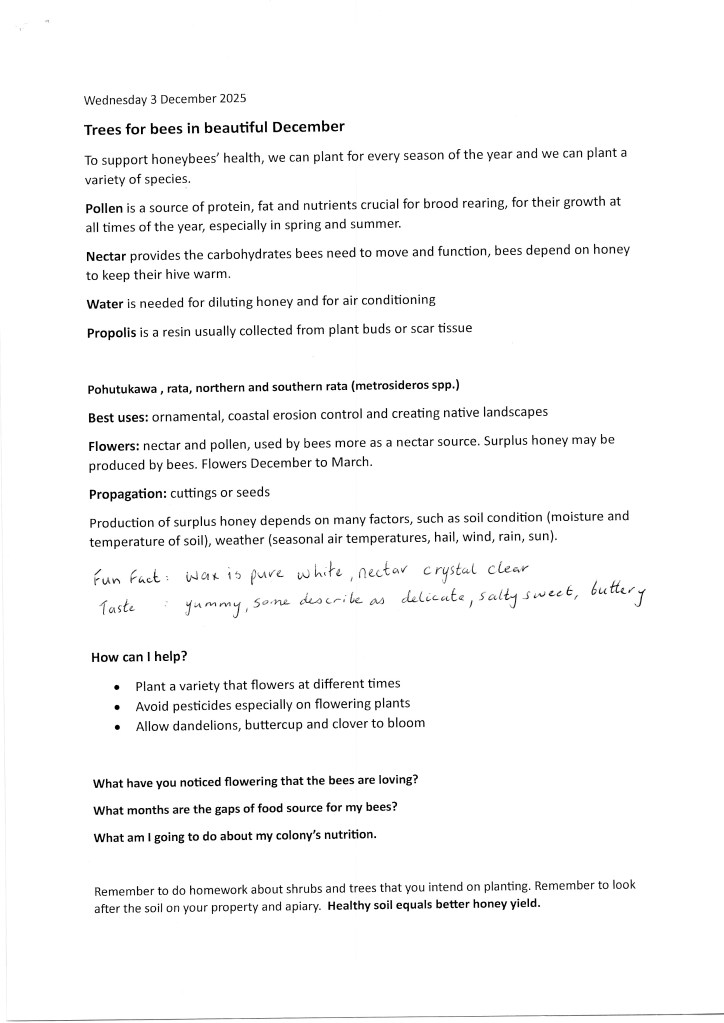 Wednesday 3 December 2025
Trees for bees in beautiful December
To support honeybees' health, we can plant for every season of the year and we can plant a
variety of species.
Pollen is a source of protein, fat and nutrients crucial for brood rearing, for their growth at
all times of the year, especially in spring and summer.
Nectar provides the carbohydrates bees need to move and function, bees depend on honey
to keep their hive warm.
Water is needed for diluting honey and for air conditioning
Propolis is a resin usually collected from plant buds or scar tissue
Pohutukawa , rata, northern and southern rata (metrosideros spp.)
Best uses: ornamental, coastal erosion control and creating native landscapes
Flowers: nectar and pollen, used by bees more as a nectar source. Surplus honey may be
produced by bees. Flowers December to March.
Propagation: cuttings or seeds
Production of surplus honey depends on many factors, such as soil condition (moisture and
temperature of soil), weather (seasonal air temperatures, hail, wind, rain, sun).
Fun Fact: wax is pure white, nectar crystal clear
Taste : yummy, some describe as delicate, salty sweet, buttery
How can I help?
• Plant a variety that flowers at different times
• Avoid pesticides especially on flowering plants
• Allow dandelions, buttercup and clover to bloom
What have you noticed flowering that the bees are loving?
What months are the gaps of food source for my bees?
What am I going to do about my colony's nutrition.
Remember to do homework about shrubs and trees that you intend on planting. Remember to look
after the soil on your property and apiary. Healthy soil equals better honey yield.